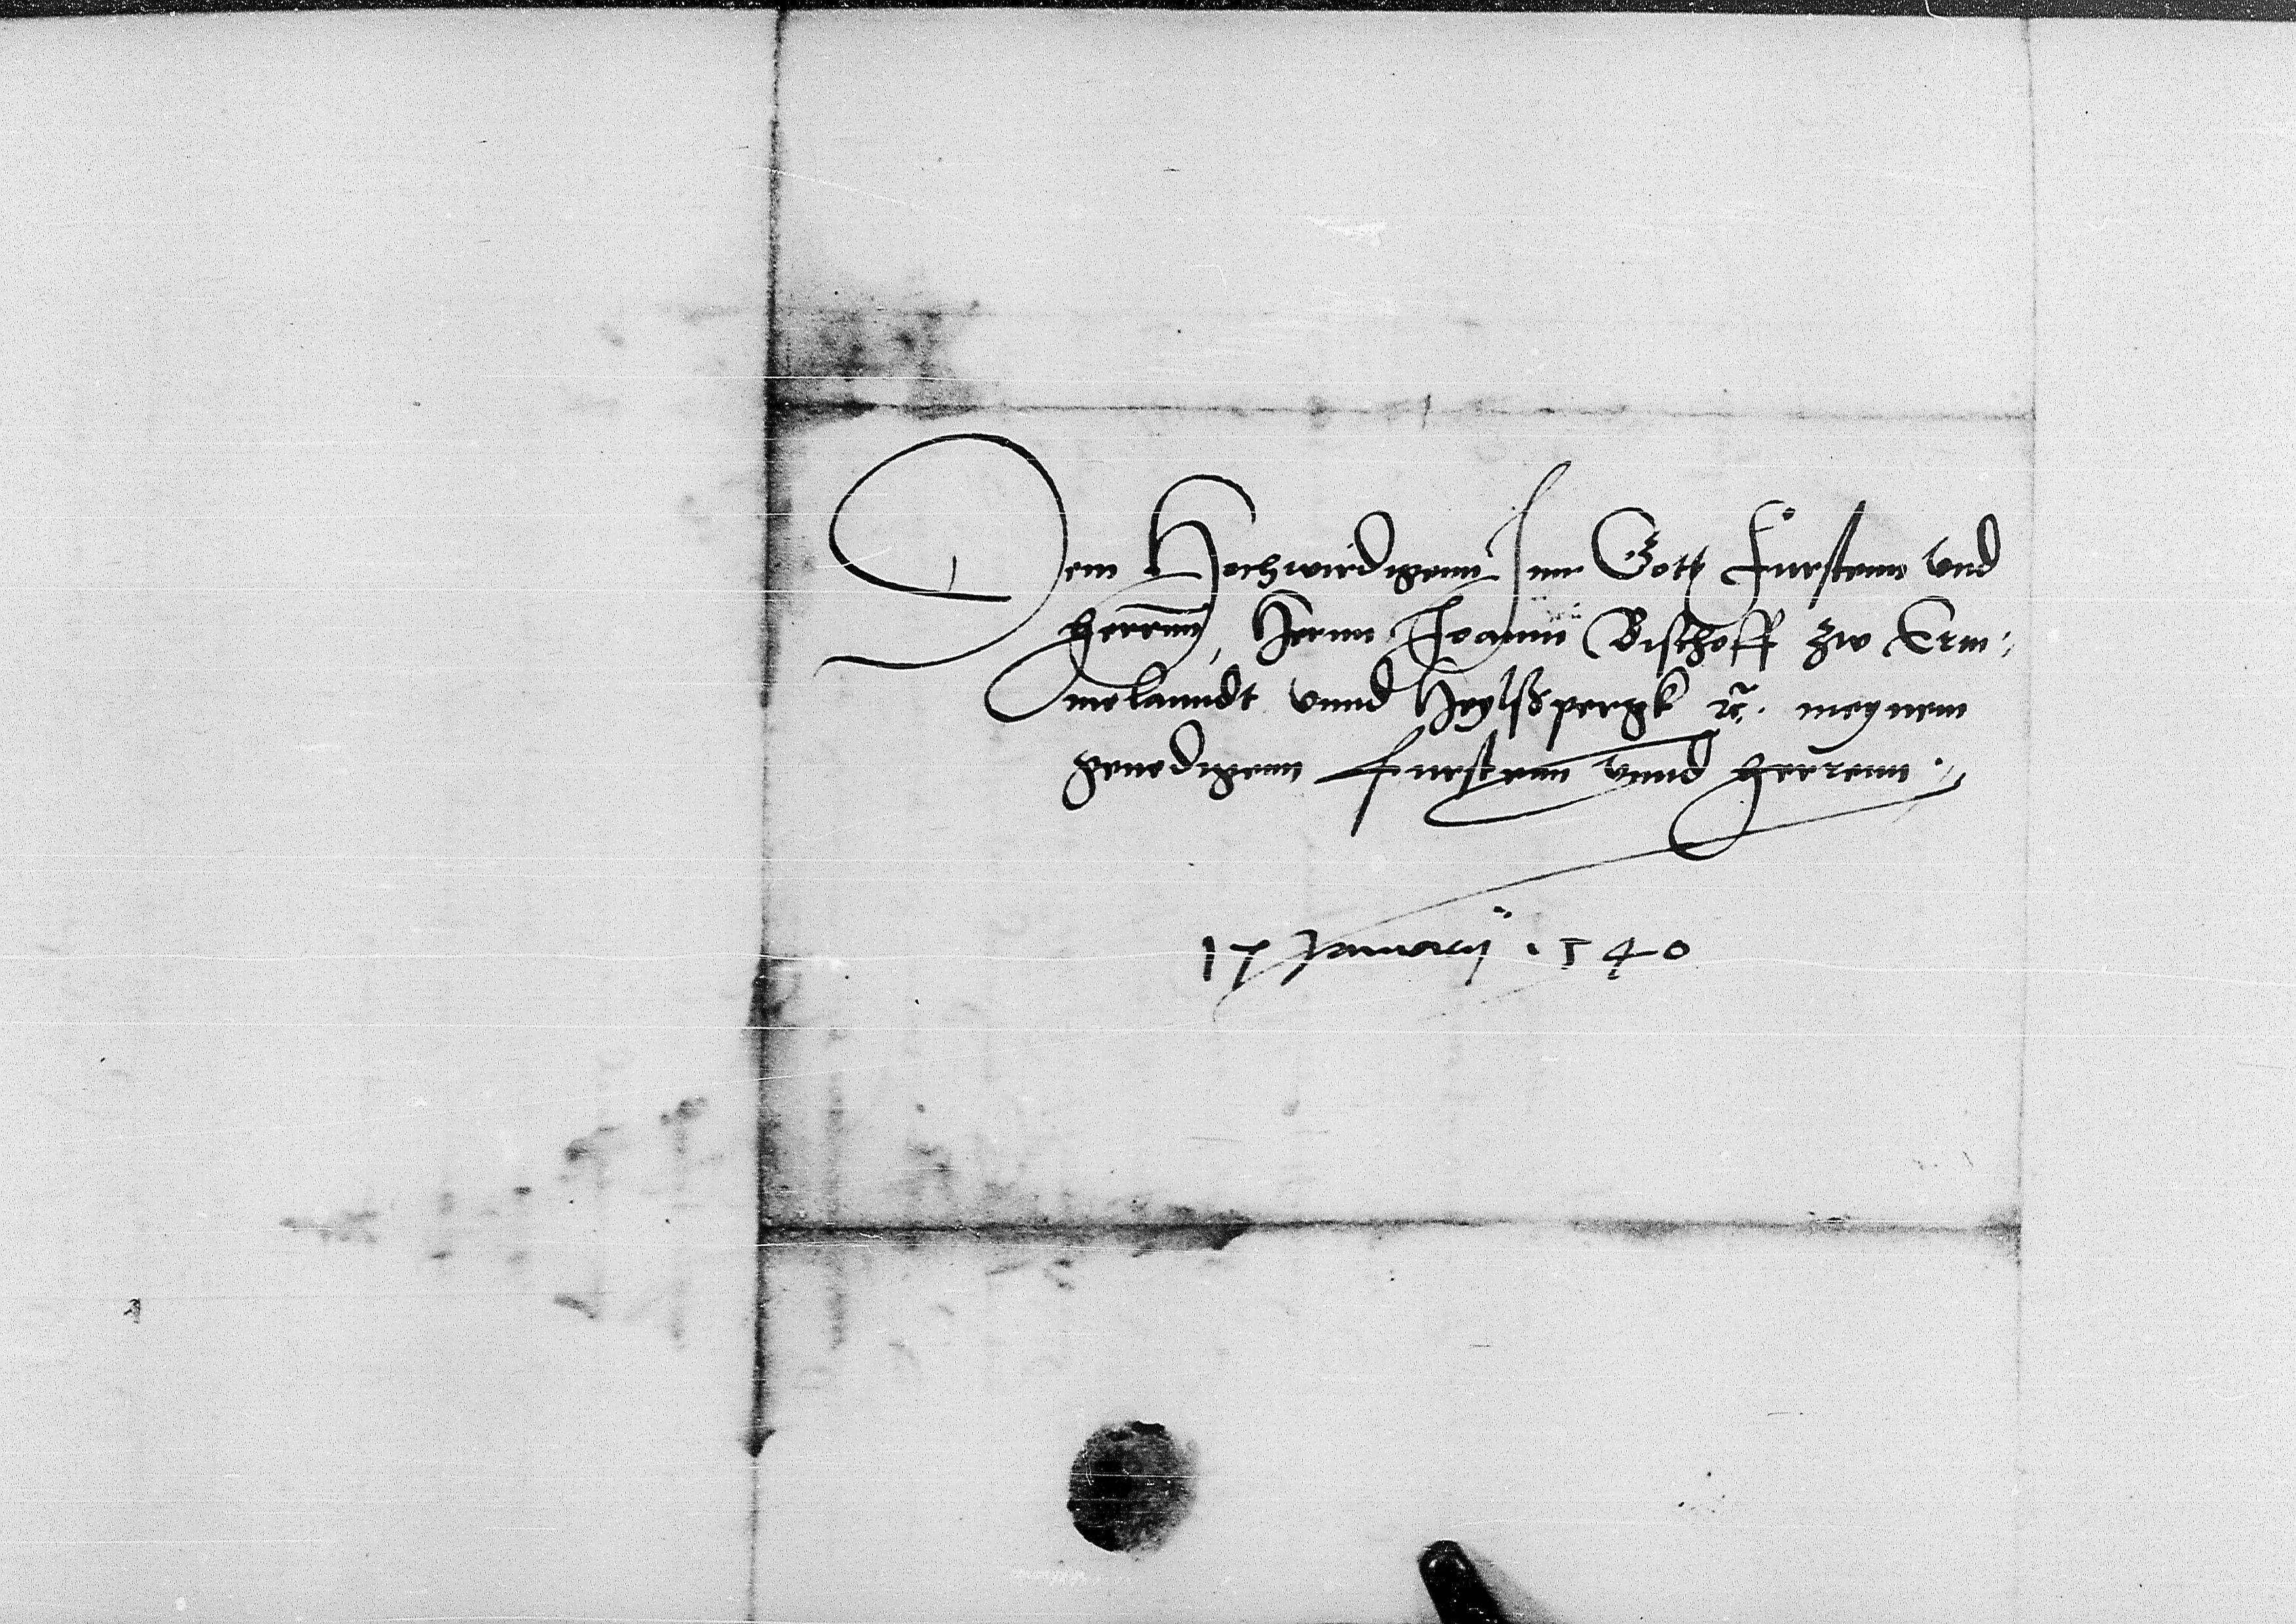 Dem Hochwirdigenn Inn Gott Furstenn vnd
herrnn, Hernn Joanni Bischoff zw Erm„
melanndt vnnd Heylßpergk ꝛc. meynem
genedigenn Furstenn vnnd herrenn.
17 Januarij 1540